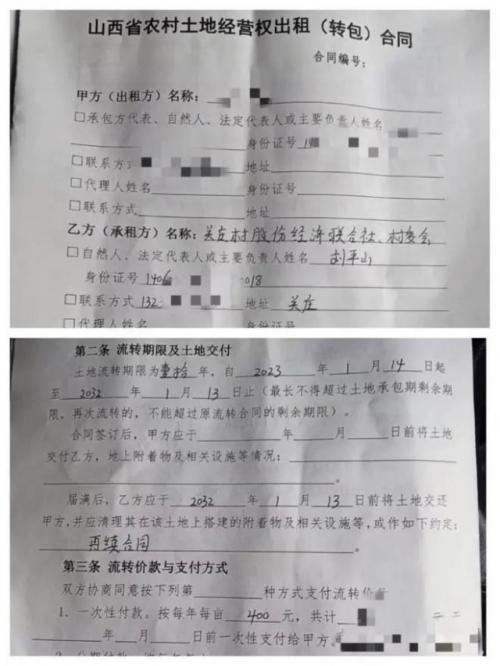 山西省农村土地经营权出租（转包）合同
合同编号：
甲方（出租方）名称：
□承包方代表、自然人、法定代表人或主要负责人姓名
身份证号1
□联系方式 地址
□代理人姓名 身份证号
□联系方式 地址
乙方（承租方）名称：关庄村股份经济联合社、村委会
□自然人、法定代表人或主要负责人姓名 刘平山
身份证号 1406 018
□联系方式 132 地址 关庄
□代理人姓名 身份证号
第二条 流转期限及土地交付
土地流转期限为壹拾年，自 2023 年 1 月 14 日起
至 2032 年 1 月 13 日止（最长不得超过土地承包期剩余期
限，再次流转的，不能超过原流转合同的剩余期限）。
合同签订后，甲方应于 年 月 日前将土地
交付乙方，地上附着物及相关设施等情况：
。
届满后，乙方应于 2032 年 1 月 13 日前将土地交还
甲方，并应清理其在该土地上搭建的附着物及相关设施等，或作如下约定：
再续合同 。
第三条 流转价款与支付方式
双方协商同意按下列第 种方式支付流转价
1、一次性付款。按每年每亩 400 元，共计
年 月 日前一次性支付给甲方。